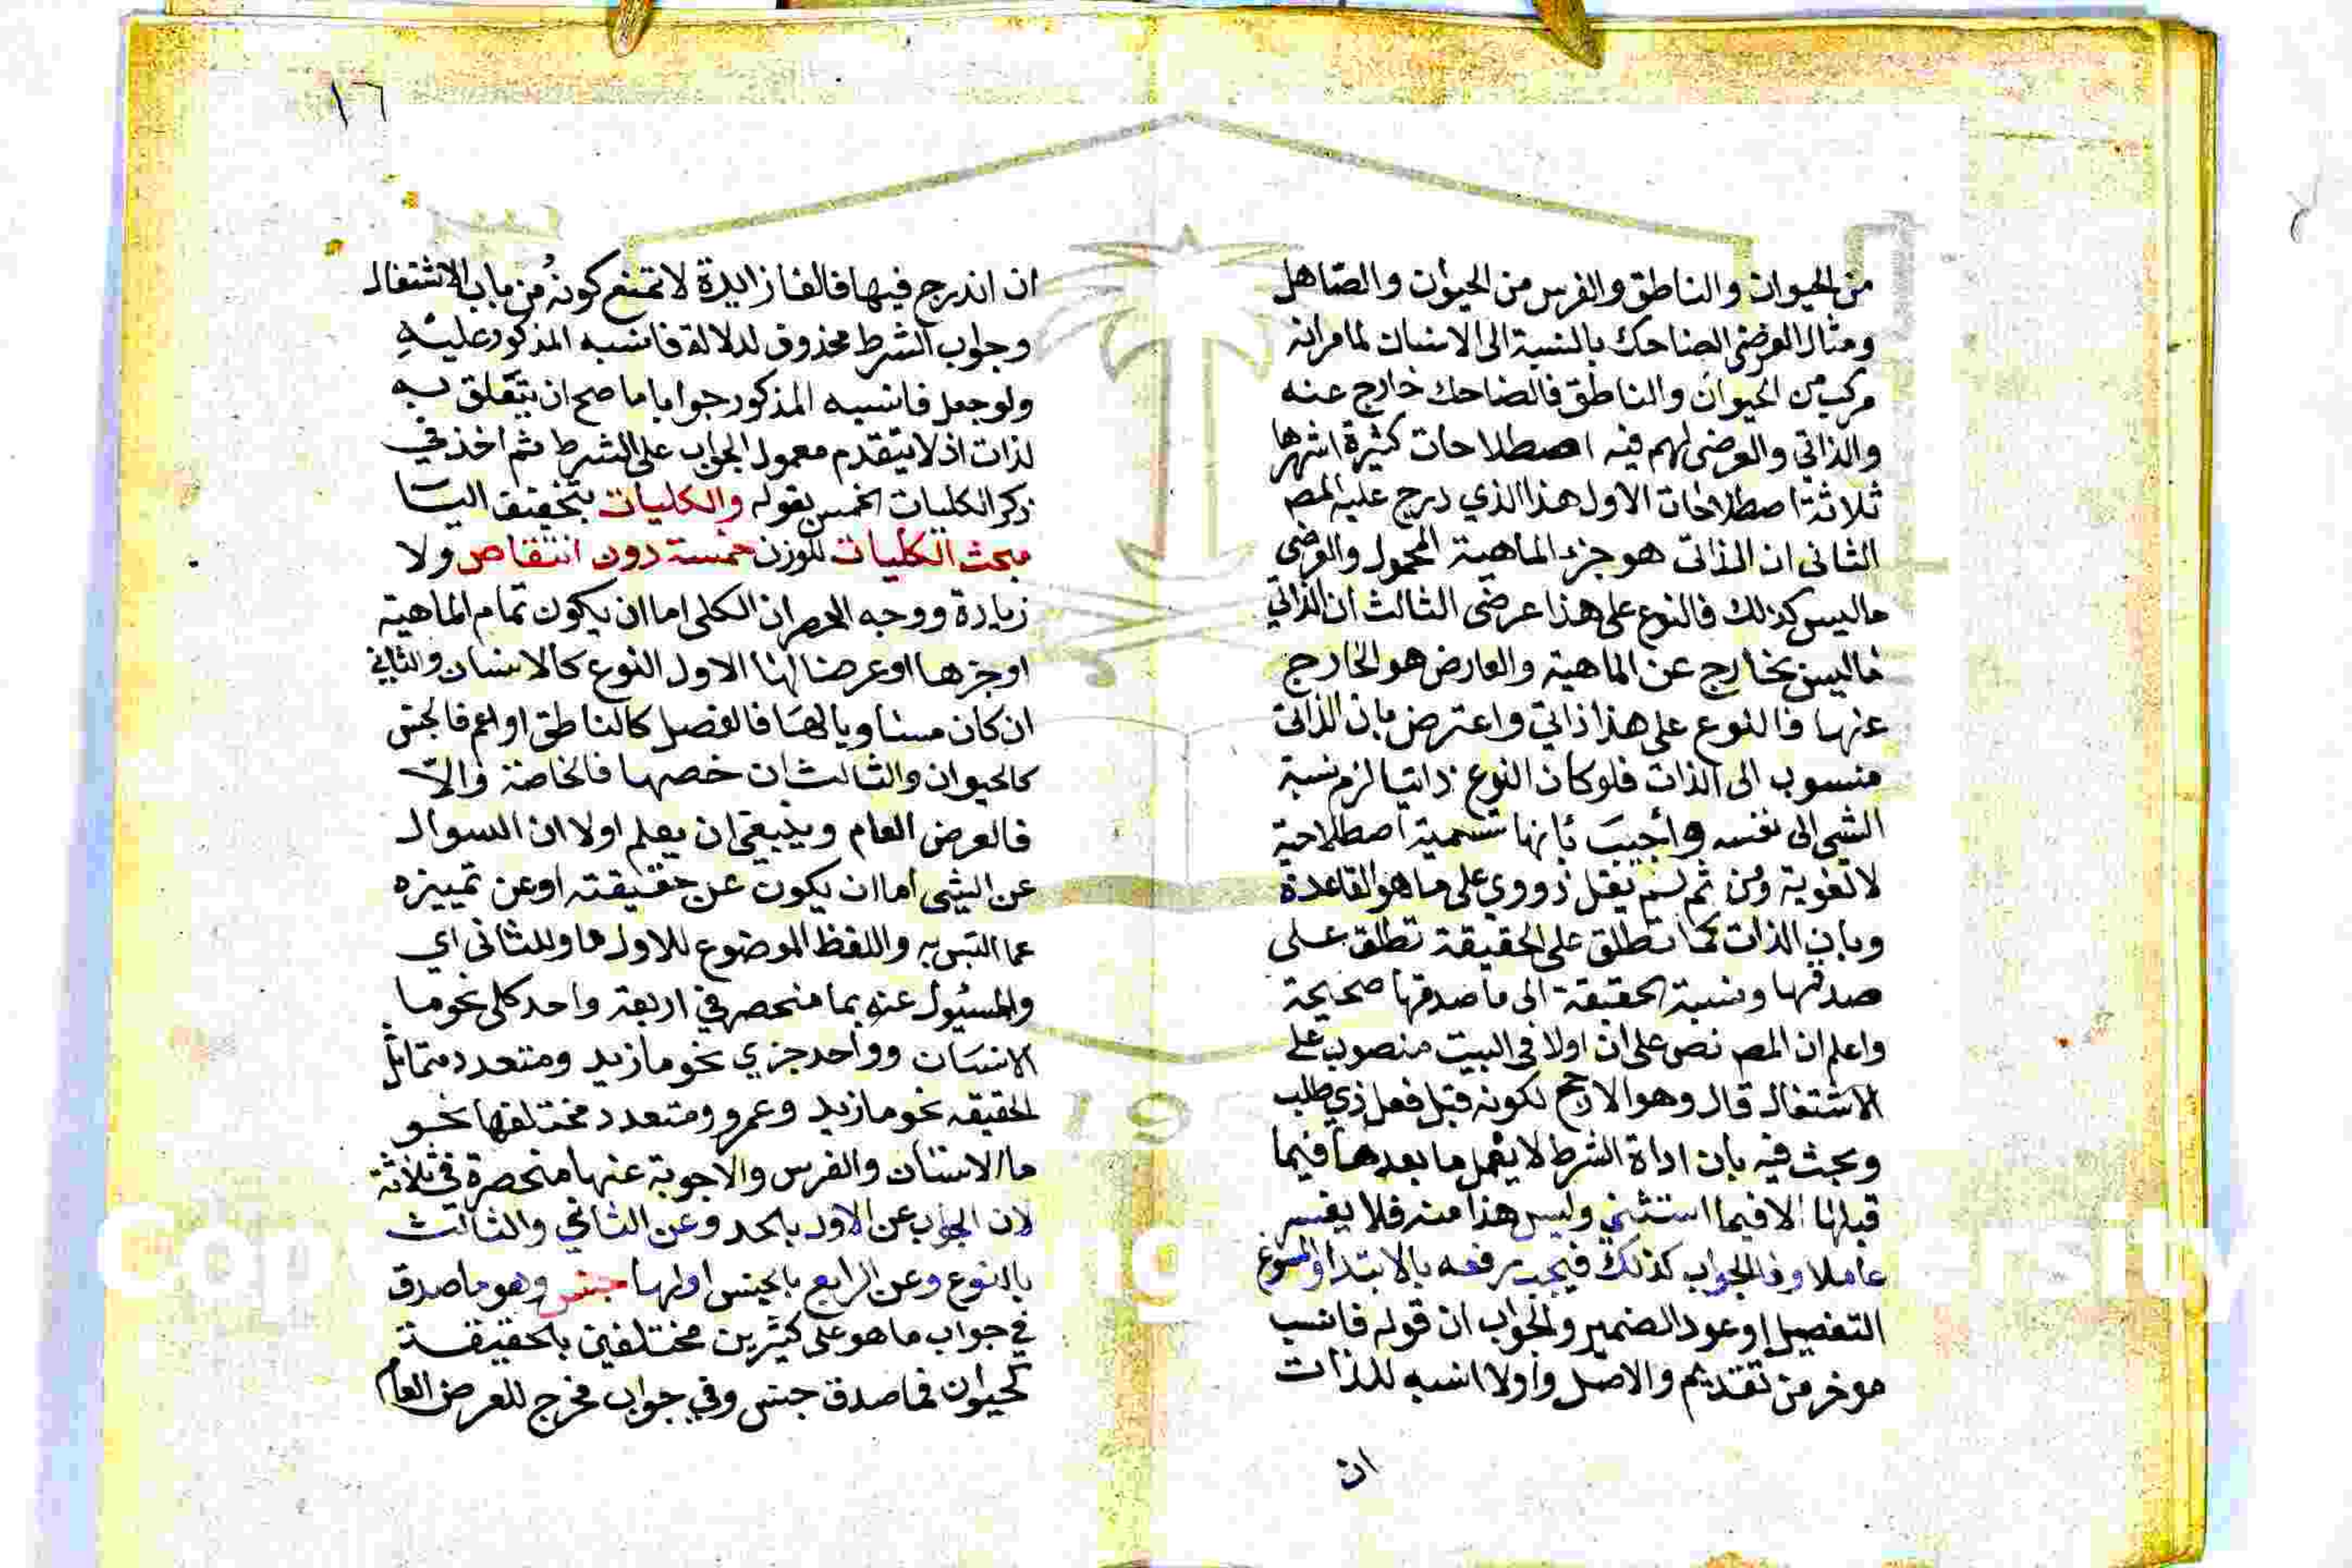 من الحيوان والناطق والفرس من الحيوان والصاهل
ومثال العرضى الضاحك بالنسبة الى الانسان لما مر انه
مركب من الحيوان والناطق فالضاحك خارج عنه
والذاتي والعرضى لهم فيه اصطلاحات كثيرة اشهرها
ثلاثة اصطلاحات الاول هذا الذي درج عليه المص
الثانى ان الذاتى هو جزء الماهية المحمول والعرضى
ما ليس كذلك فالنوع على هذا عرضى الثالث ان الذاتي
ما ليس بخارج عن الماهية والعارض هو الخارج
عنها فالنوع على هذا ذاتي واعترض بان الذاتى
منسوب الى الذات فلو كان النوع ذاتيا لزم نسبة
الشى الى نفسه واجيب بانها تسمية اصطلاحية
لا لغوية ومن ثم لم يقل ذووي على ما هو القاعدة
وبان الذات كما تطلق على الحقيقة تطلق على
صدقها ونسبة الحقيقة الى ما صدقها صحيحة
واعلم ان المص نص على ان اولا فى البيت منصوب على
الاشتغال قال وهو الارجح لكونه قبل فعل ذي طلب
وبحث فيه بان اداة الشرط لا يعمل ما بعدها فيما
قبلها الا فيما استثني وليس هذا منه فلا يفسر
عاملا وفا الجواب كذلك فيجب رفعه بالابتدا والمسوغ
التفصيل او عود الضمير والجواب ان قوله فانسب
موخر من تقديم والاصل واولا انسبه للذات
ان
١٦
ان اندرج فيها فالفا زايدة لا تمنع كونه من باب الاشتغال
وجواب الشرط محذوف لدلالة فانسبه المذكور عليه
ولو جعل فانسبه المذكور جوابا ما صح ان يتعلق به
لذات اذ لا يتقدم معمول الجواب على الشرط ثم اخذ في
ذكر الكليات الخمس بقوله والكليات بتخفيف اليا
مبحث الكليات للوزن خمسة دون انتقاص ولا
زيادة ووجه الحصر ان الكلى اما ان يكون تمام الماهية
او جزها او عرضا لها الاول النوع كالانسان والثاني
ان كان مساويا لها فالفصل كالناطق او اعم فالجنس
كالحيوان والثالث ان خصها فالخاصة والا
فالعرض العام وينبغي ان يعلم اولا ان السوال
عن الشى اما ان يكون عن حقيقته او عن تمييزه
عما التبس به واللفظ الموضوع للاول ما وللثانى اي
والمسئول عنه بما منحصر في اربعة واحد كلى نحو ما
الانسان وواحد جزي نحو ما زيد ومتعدد متماثل
الحقيقه نحو ما زيد وعمرو ومتعدد مختلفها نحو
ما الانسان والفرس والاجوبة عنها منحصرة في ثلاثة
لان الجواب عن الاول بالحد وعن الثاني والثالث
بالنوع وعن الرابع بالجنس اولها جنس وهو ما صدق
في جواب ما هو على كثيرين مختلفين بالحقيقة
كحيوان فما صدق جنس وفي جواب مخرج للعرض العام